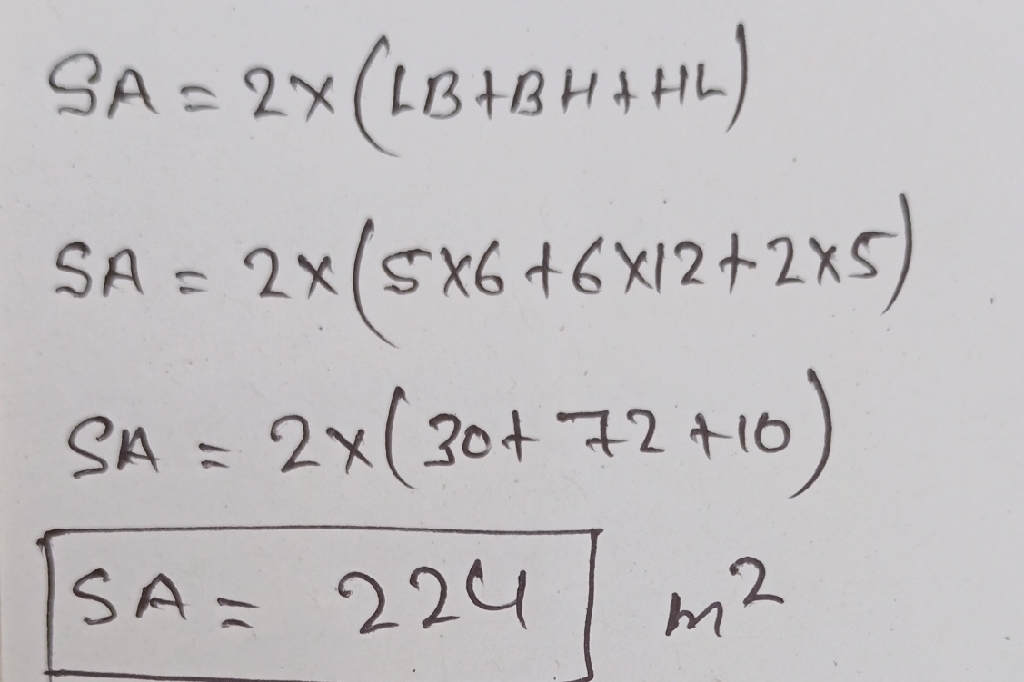 SA = 2x(LB+BH+HL)
SA = 2x(5x6+6x12+2x5)
SA = 2x(30+72+10)
SA = 224 m²